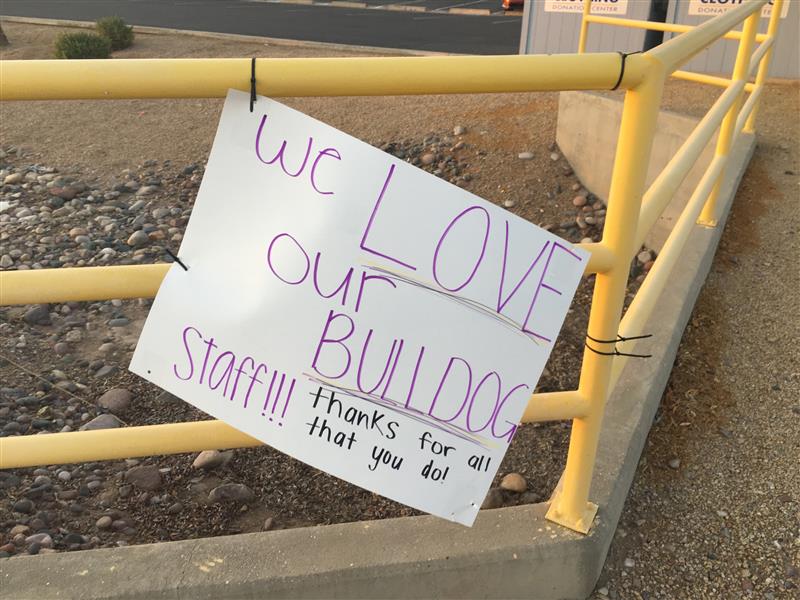 DONATION CENTER
DONATION CENTER
we LOVE
our
BULLDOG
Staff!!!
thanks for all
that you do!